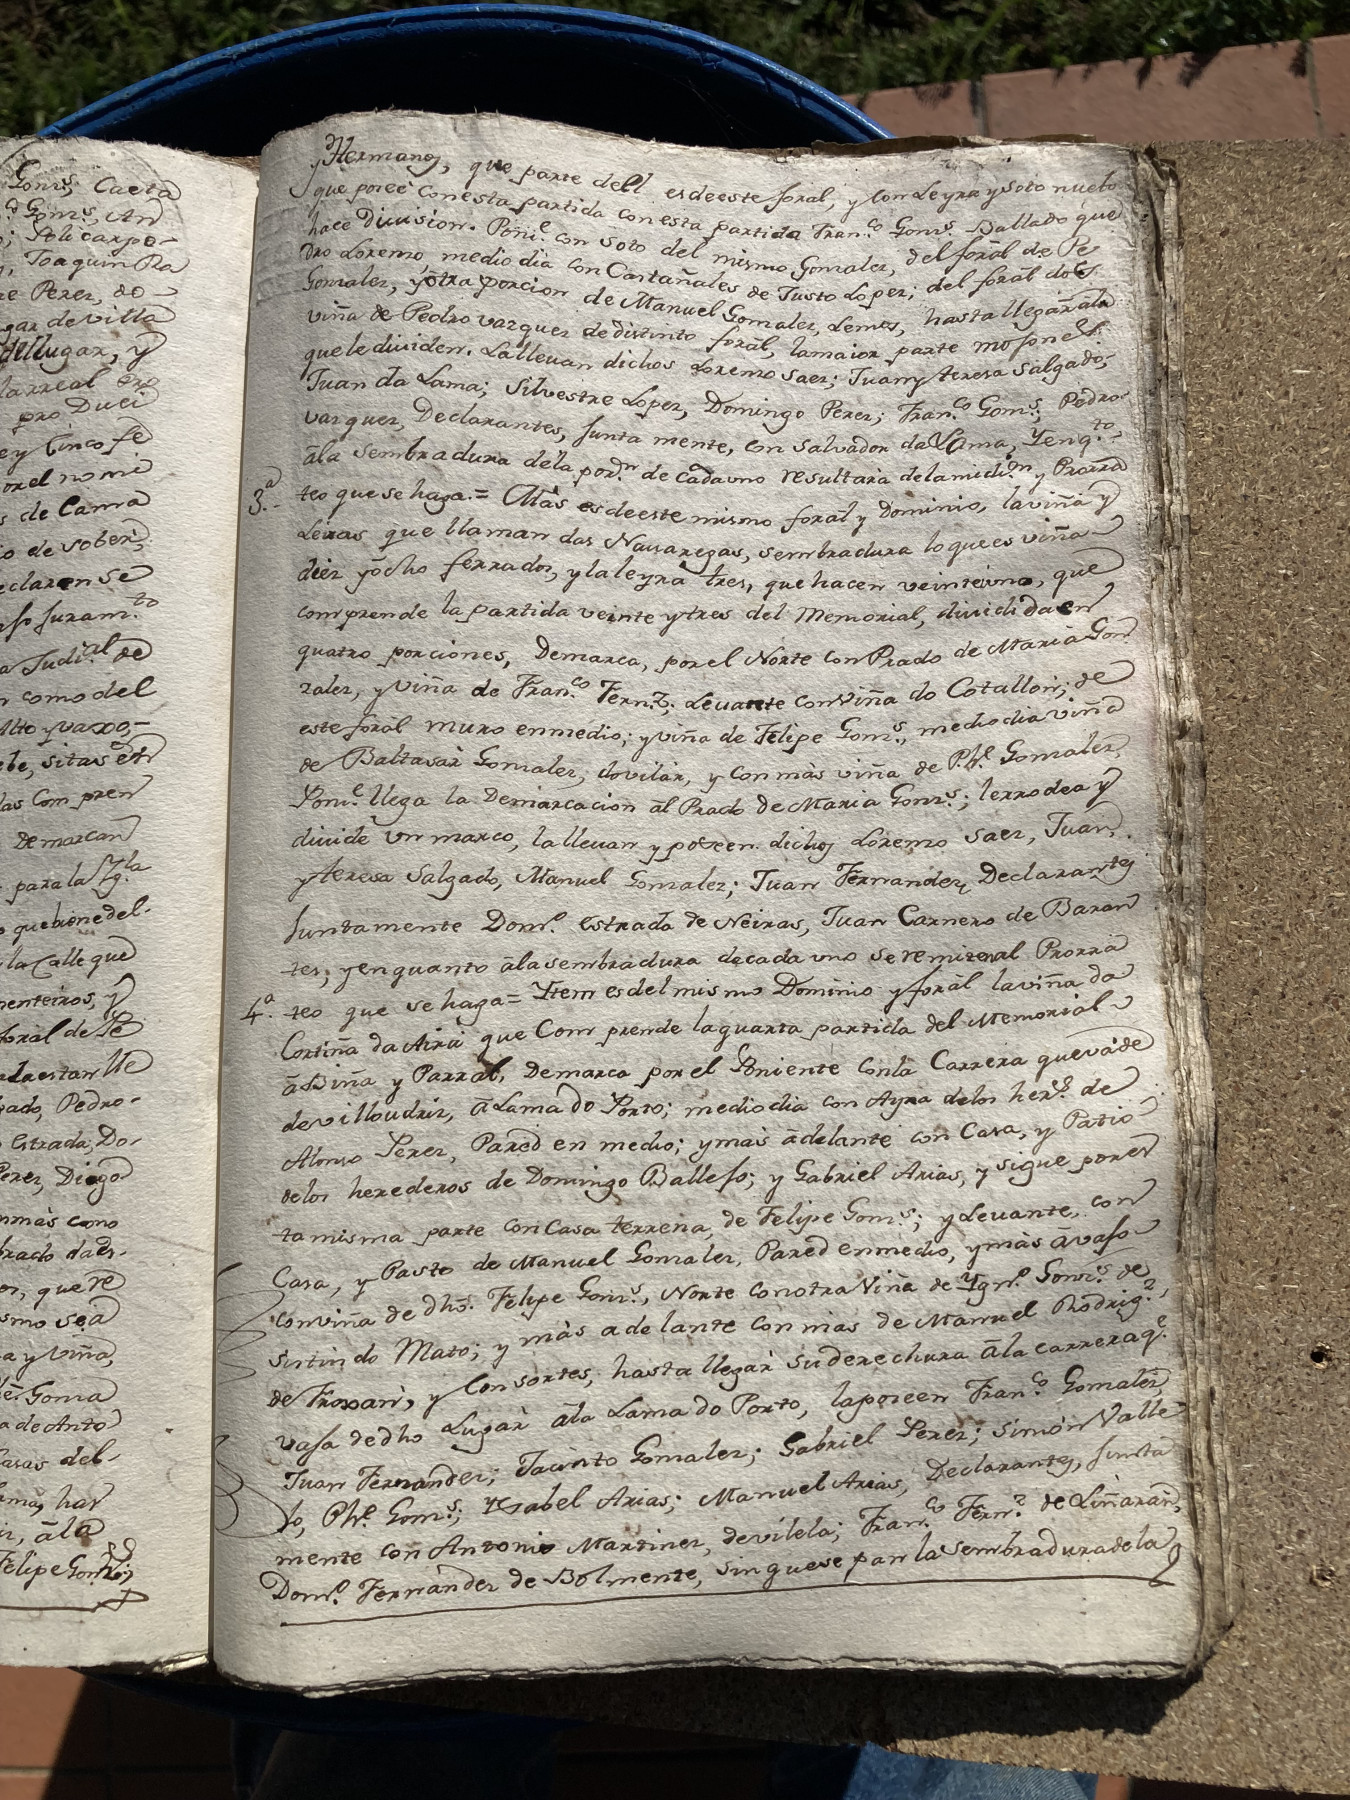 Gom.s, Caeta
Gom.s, An
Policarpo-
, Joaquin Ra
re Perez, do-
gar de villa
del lugar, y
larreal
pro Duci
e y Cinco fe
or el nomi
s de Cama
io de sober.
eclaren se
Juram.to
a Judi.al de
n como del
Alto y vaxo,
ebe, sitas en
las Com pren
Demarcan
para la
o que biene del-
la Calle que
menteiros, y
foral de Pe
ada estan lle
gado, Pedro-
Estrada, Do-
Perez, Diego
nmàs como
brado da es-
or, que re
smo sea
a y viña,
Goma
a de Anto
Casas del-
ama, har
, âla
Felipe Gom.z;
y Herman.os, que parte dell es de este foral, y con Leyra y soto nuebo
que poseé con esta partida con esta partida Fran.co Gom.s Vallado que
hace Diuision. Poni.e con soto del mismo Gonzalez, del forâl de Pe
dro Lorenzo medio dia con Castañales de Justo Lopez; del foral do
Gonzalez, y otra porcion de Manuel Gonzalez, Lemos, hasta llegar ala
viña de Pedro vazquez de distinto foral, la maior parte mojones
que le diuiden. La lleuan dichos Lorenzo Saez; Juan y teresa Salgado;
Juan da Lama; Silvestre Lopez, Domingo Perez; Fran.co Gom.s; Pedro
vazquez, Declarantes, Junta mente, con Salvador da Lama, Y en q.to
âla Sembradura dela por.n de cada uno resultarà dela medi.on y Prorra
3.a teo que se haga.= Màs es de este mismo foral y Dominio, la viña y
Leiras que llaman das Nauaregas, sembradura lo que es viña
diez y ocho ferrados, y la leyra tres, que hacen veinte i uno, que
comprende la partida veinte y tres del Memorial, diuidida en
quatro porciones, Demarca, por el Norte con Prado de Maria Gon
zalez, y viña de Fran.co Fern.z; Leuante con Viña do Cotallon; de
este foral muro en medio; y viña de Felipe Gom.s, medio dia viña
de Baltasàr Gonzalez, do vilàr, y con màs viña de Ph.e Gonzalez,
Poni.e llega la Demarcacion âl Prado de Maria Gom.s; le rrodea y
diuide un marco, la lleuan y poseen dichos Lorenzo Saez, Juan,
y teresa Salgado, Manuel Gonzalez; Juan Fernandez Declarantes
Juntamente Dom.o Estrada de Neiras, Juan Carnero de Baran
tes; y en quanto âla sembradura de cada uno se remiten al Prorra
4.a teo que se haga= Ytem es del mis mo Dominio y forâl la viña da
Cortiña da Airà que Com prende la quarta partida del Memorial
â Viña y Parral, Demarca por el Poniente con la Carrera que và de
de villoudriz, â Lama do Porto; medio dia con Ayra delos her.s de
Alonso Perez, Pared en medio; y màs âdelante con Casa, y Patio
delos herederos de Domingo Vallejo; y Gabriel Arias, y sigue por es
ta misma parte con Casa terrena, de Felipe Gom.s; y Levante, con
Casa, y Pasto de Manuel Gonzalez, Pared en medio, y màs âvajo
con viña de dho. Felipe Gom.s, Norte con otra Viña de Ygn.o Gom.s de
Sintin do Mato; y màs adelante con mas de Manuel Rodrig.z,
de Froxan, y Consortes, hasta llegàr su derechura âla carrera q.e
vaja de dho Lugàr âla Lama do Porto, la poseen Fran.co Gonzalez,
Juan Fernandez; Jacinto Gonzalez; Gabriel Perez; Simòn Valle
Jo, Ph.e Gom.s; Ysabel Arias; Manuel Arias, Declarantes, Junta
mente con Antonio Martinez, de vilela; Fran.co Fern.z de Liñaràn,
Dom.o Fernàndez de Bolmente, sin que se par la sembradura de la